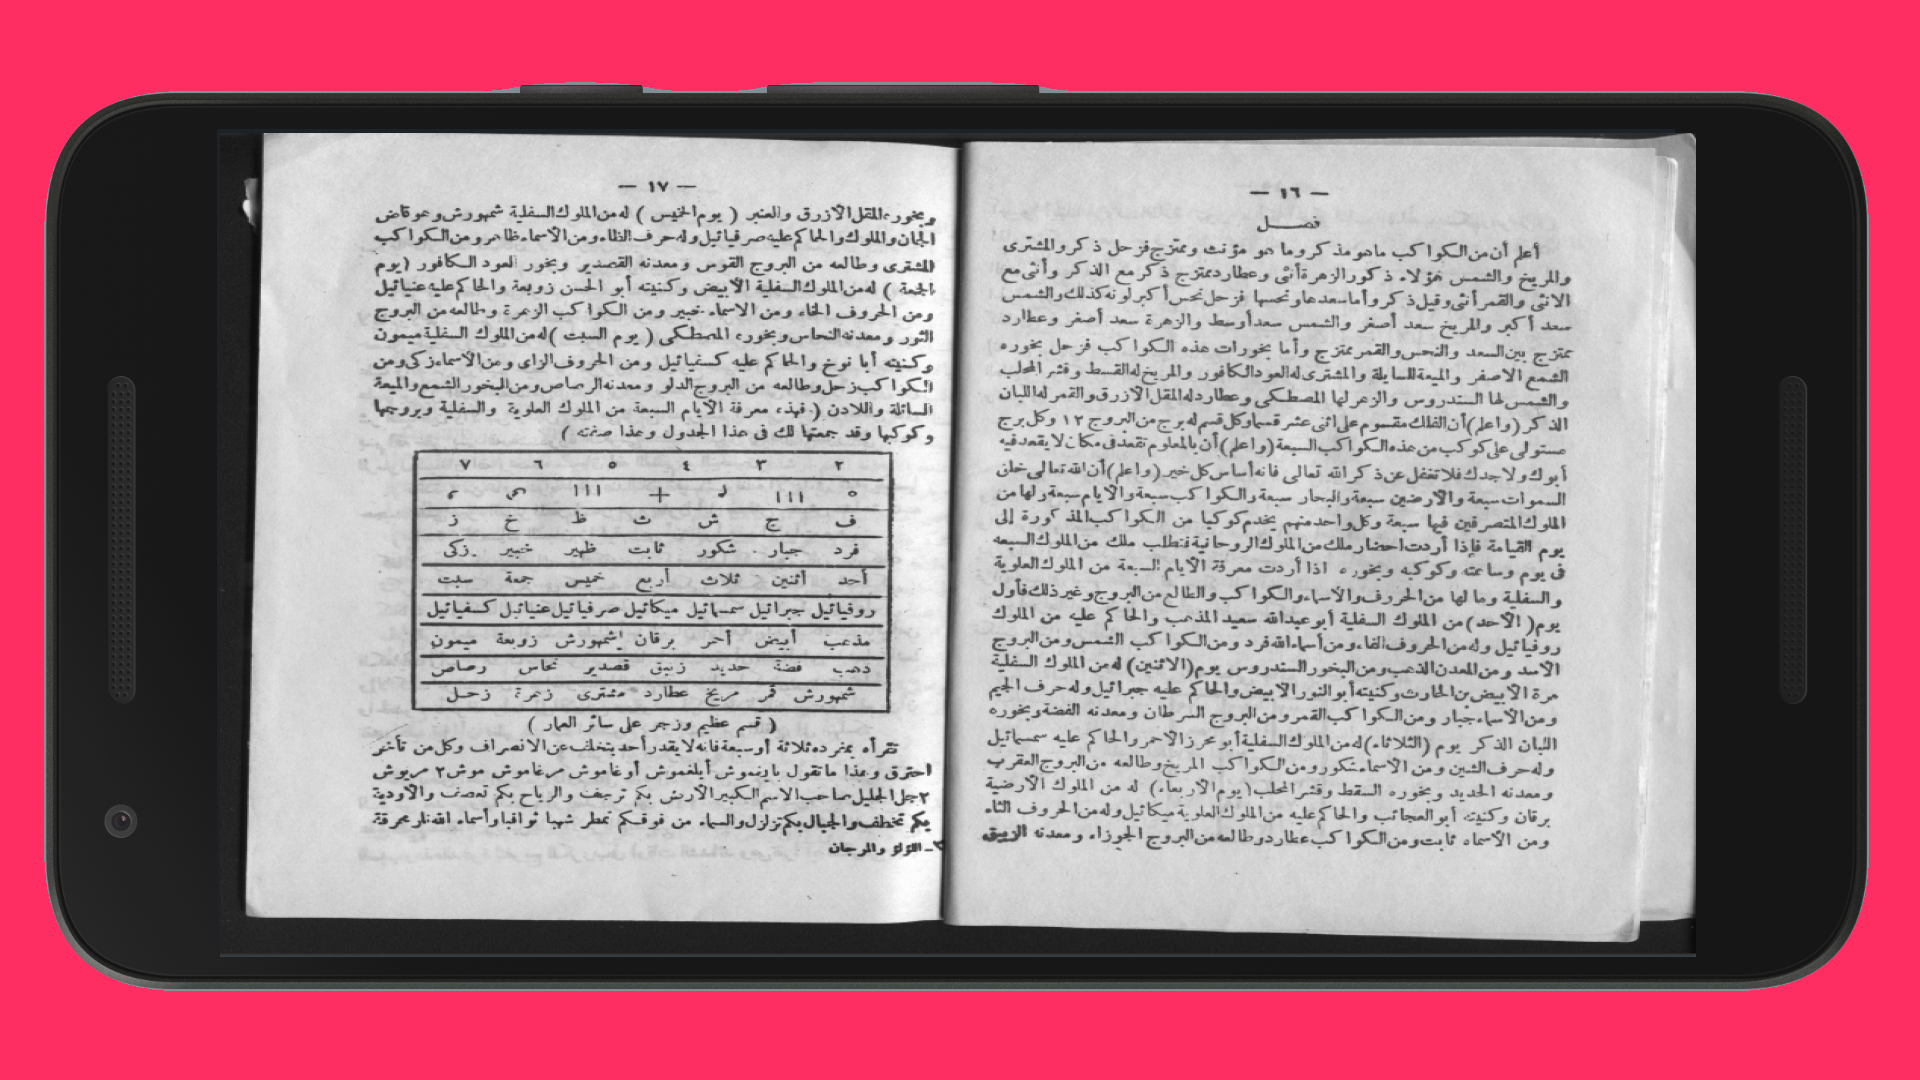 — ١٦ —
فصــل
أعلم أن من الكواكب ما هو مذكر وما هو مؤنث وممتزج فزحل ذكر والمشترى
والمريخ والشمس هؤلاء ذكور الزهرة أنثى وعطارد ممتزج ذكر مع الذكر وأنثى مع
الانثى والقمر أنثى وقيل ذكر وأما سعدها ونحسها فزحل نحس أكبر لونه كذلك والشمس
سعد أكبر والمريخ سعد أصغر والشمس سعد أوسط والزهرة سعد أصغر وعطارد
ممتزج بين السعد والنحس والقمر ممتزج وأما بخورات هذه الكواكب فزحل بخوره
الشمع الاصفر والميعة السايلة والمشترى له العود الكافور والمريخ له القسط وقشر المحلب
والشمس لها السندروس والزهر لها المصطكى وعطارد له المقل الأزرق والقمر له اللبان
الذكر (واعلم) أن الفلك مقسوم على اثنى عشر قسما وكل قسم له برج من البروج ١٢ وكل برج
مستولى على كوكب من هذه الكواكب السبعة (واعلم) أن بالمعلوم تقعد فى مكان لا يقعد فيه
أبوك ولا جدك فلا تغفل عن ذكر الله تعالى فانه أساس كل خير (واعلم) أن الله تعالى خلق
السموات سبعة والأرضين سبعة والبحار سبعة والكواكب سبعة والأيام سبعة ولها من
الملوك المتصرفين فيها سبعة وكل واحد منهم يخدم كوكبا من الكواكب المذكورة إلى
يوم القيامة فإذا أردت احضار ملك من الملوك الروحانية فتطلب ملك من الملوك السبعه
فى يوم وساعته وكوكبه وبخوره اذا أردت معرفة الأيام السبعة من الملوك العلوية
والسفلية وما لها من الحروف والأسماء والكواكب والطالع من البروج وغير ذلك فأول
يوم (الأحد) من الملوك السفلية أبو عبدالله سعيد المذهب والحاكم عليه من الملوك
روقيائيل وله من الحروف الفاء ومن أسماء الله فرد ومن الكواكب الشمس ومن البروج
الأسد ومن المعدن الذهب ومن البخور السندروس يوم (الاثنين) له من الملوك السفلية
مرة الأبيض بن الحارث وكنيته أبو النور الأبيض والحاكم عليه جبرائيل وله حرف الجيم
ومن الأسماء جبار ومن الكواكب القمر ومن البروج السرطان ومعدنه الفضة وبخوره
اللبان الذكر يوم (الثلاثاء) له من الملوك السفلية أبو محرز الأحمر والحاكم عليه سمسمائيل
وله حرف الشين ومن الأسماء شكور ومن الكواكب المريخ وطالعه من البروج العقرب
ومعدنه الحديد وبخوره السقط وقشر المحلب (يوم الأربعاء) له من الملوك الأرضية
برقان وكنيته أبو العجائب والحاكم عليه من الملوك العلوية ميكائيل وله من الحروف الثاء
ومن الأسماء ثابت ومن الكواكب عطارد وطالعه من البروج الجوزاء ومعدنه الزيبق
— ١٧ —
وبخوره المقل الأزرق والعنبر (يوم الخميس) له من الملوك السفلية شمهورش وهو قاض
الجان والملوك والحاكم عليه صرفيائيل وله حرف الظاء ومن الأسماء ظاهر ومن الكواكب
المشترى وطالعه من البروج القوس ومعدنه القصدير وبخور العود الكافور (يوم
الجمعة) له من الملوك السفلية الأبيض وكنيته أبو الحسن زوبعة والحاكم عليه عنيائيل
ومن الحروف الخاء ومن الاسماء خبير ومن الكواكب الزهرة وطالعه من البروج
الثور ومعدنه النحاس وبخوره المصطكى (يوم السبت) له من الملوك السفلية ميمون
وكنيته أبا نوخ والحاكم عليه كسفيائيل ومن الحروف الزاى ومن الأسماء زكى ومن
الكواكب زحل وطالعه من البروج الدلو ومعدنه الرصاص ومن البخور الشمع والميعة
السائلة واللادن (فهذه معرفة الأيام السبعة من الملوك العلوية والسفلية وبروجها
وكوكبها وقد جمعتها لك فى هذا الجدول وهذا صفته)
٢ ٣ ٤ ٥ ٦ ٧
ف ج ش ث ظ خ ز
فرد جبار شكور ثابت ظهير خبير زكى
أحد أثنين ثلاث أربع خميس جمعة سبت
روقيائيل جبرائيل سمسمائيل ميكائيل صرفيائيل عنيائيل كسفيائيل
مذهب أبيض أحمر برقان شمهورش زوبعة ميمون
ذهب فضة حديد زيبق قصدير نحاس رصاص
شمهورش قمر مريخ عطارد مشترى زهرة زحل
(قسم عظيم وزجر على سائر العمار)
تقرأه بمفرده ثلاثة أو سبعة فانه لا يقدر أحد يتخلف عن الانصراف وكل من تأخر
احترق وهذا ما تقول يا ينموش أيلغموش أوغاموش مرغاموش موش ٢ مريوش
٢ جل الجليل صاحب الاسم الكبير الأرض بكم ترجف والرياح بكم تعصف والأودية
بكم تخطف والجبال بكم تزلزل والسماء من فوقكم تمطر شهبا ثواقبا وأسماء الله نار محرقة
٢ــ اللؤلؤ والمرجان